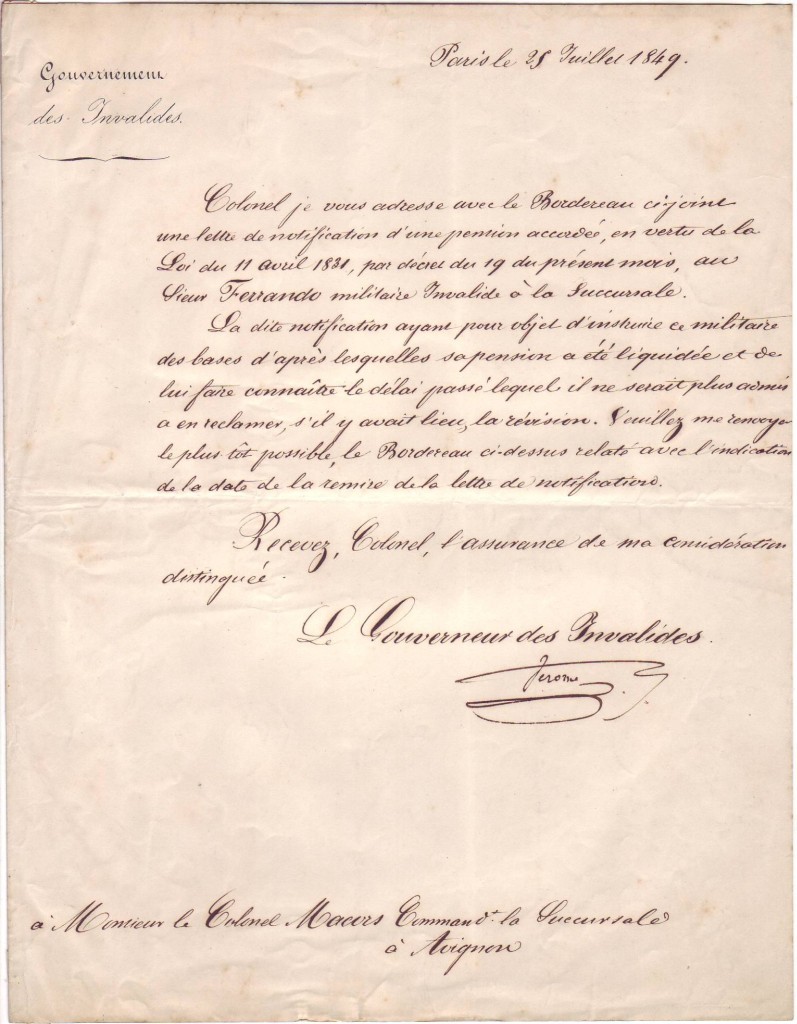 Gouvernement
des Invalides.
Paris le 25 Juillet 1849.
Colonel je vous adresse avec le Bordereau ci-joint
une lettre de notification d'une pension accordée, en vertu de la
Loi du 11 avril 1831, par décret du 19 du présent mois, au
Sieur Ferrando militaire Invalide à la Succursale.
La dite notification ayant pour objet d'instruire ce militaire
des bases d'après lesquelles sa pension a été liquidée et de
lui faire connaître le délai passé lequel il ne serait plus admis
a en reclamer, s'il y avait lieu, la révision. Veuillez me renvoyer
le plus tôt possible, le Bordereau ci-dessus relaté avec l'indication
de la date de la remise de la lettre de notification.
Recevez, Colonel, l'assurance de ma considération
distinguée.
Le Gouverneur des Invalides.
Jerome
à Monsieur le Colonel Command.t la Succursale
à Avignon